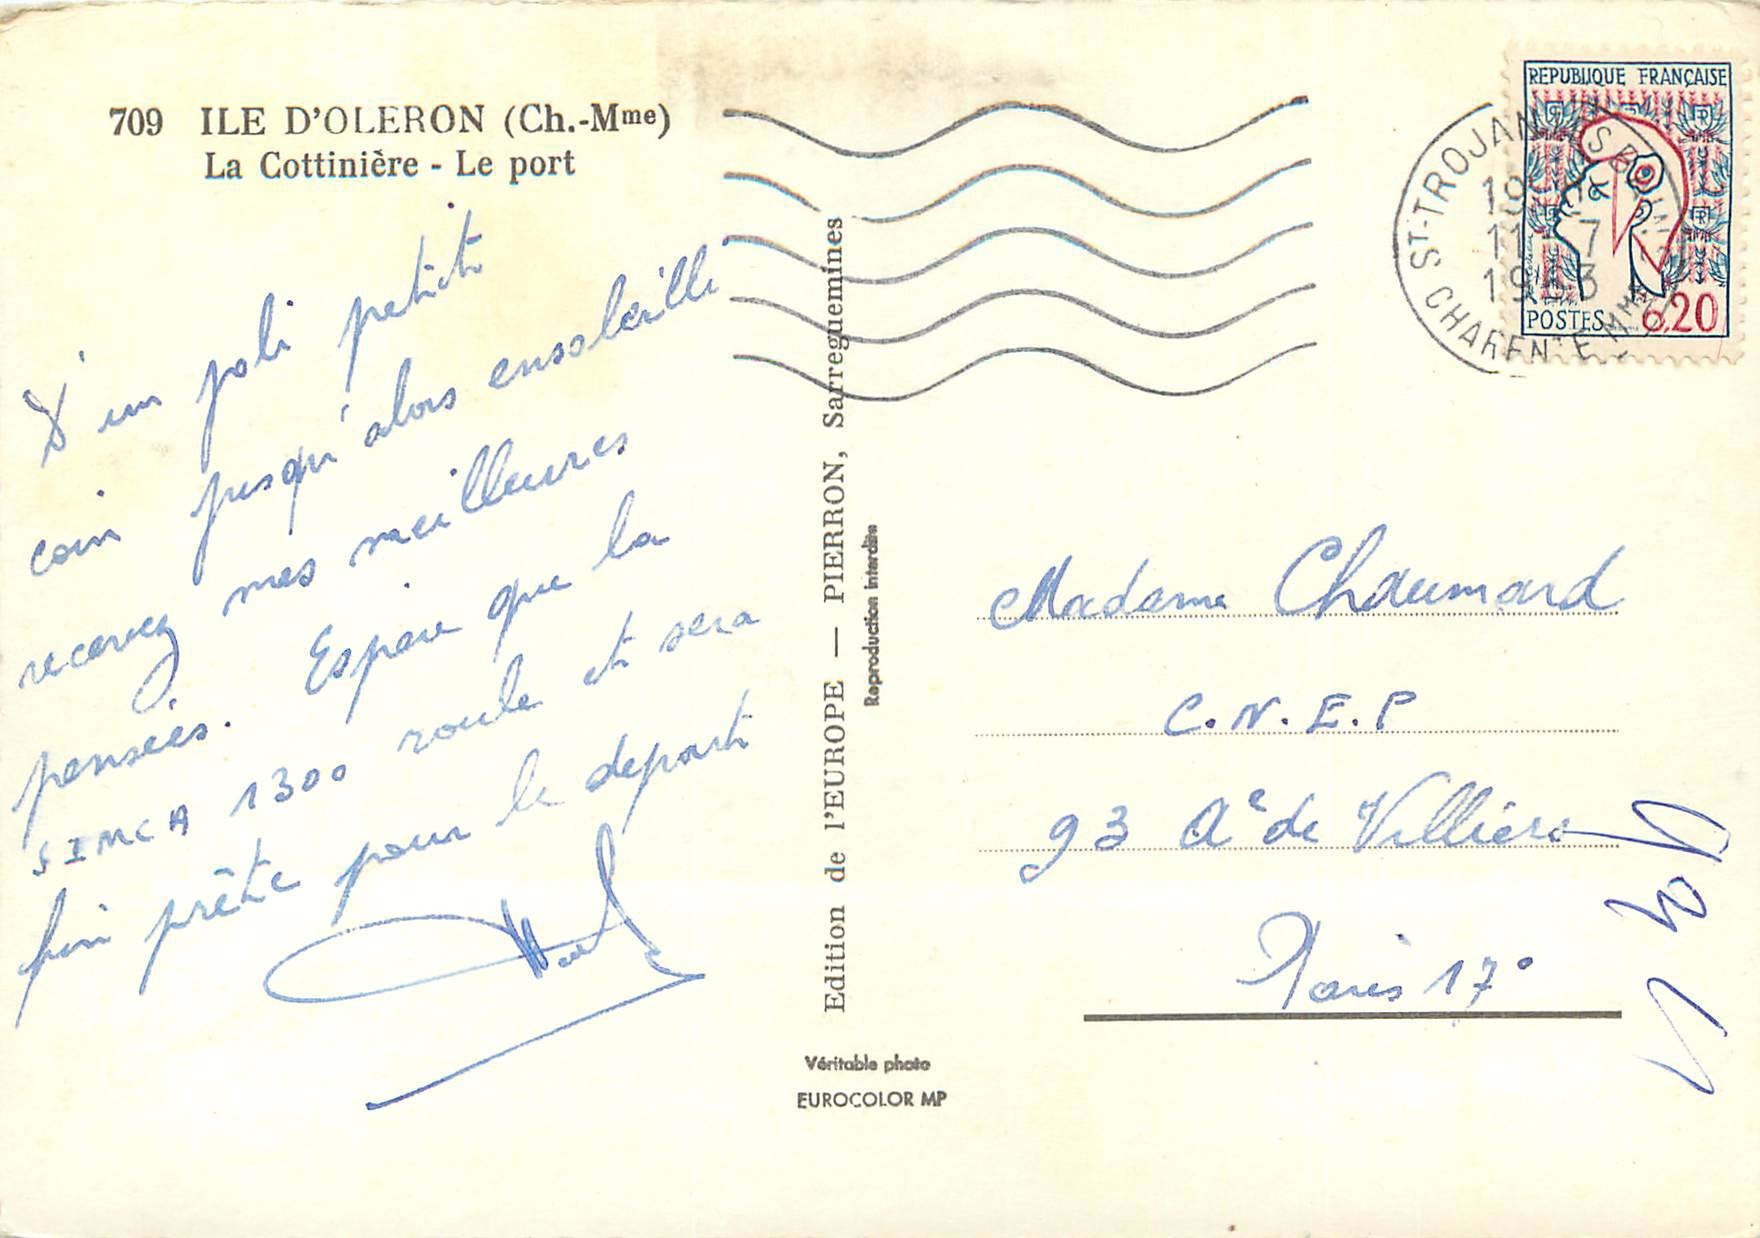 709 ILE D'OLERON (Ch.-Mme)
La Cottinière - Le port
D'un joli petit
coin jusqu'alors ensoleillé
recevez mes meilleures
pensées. Espère que la
SIMCA 1300 roule et sera
fin prête pour le départ
Edition de l'EUROPE — PIERRON, Sarreguemines
Reproduction interdite
Véritable photo
EUROCOLOR MP
REPUBLIQUE FRANÇAISE
POSTES 0,20
ST-TROJAN LES BAINS
CHARENTE MME
11 - 7
1963
Madame Chaumard
C.N.E.P
93 Ae de Villiers
Paris 17°